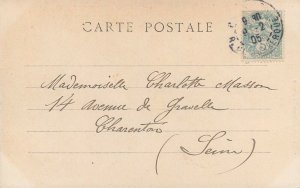 CARTE POSTALE
Mademoiselle Charlotte Masson
14 Avenue de Gravelle
Charenton
(Seine)